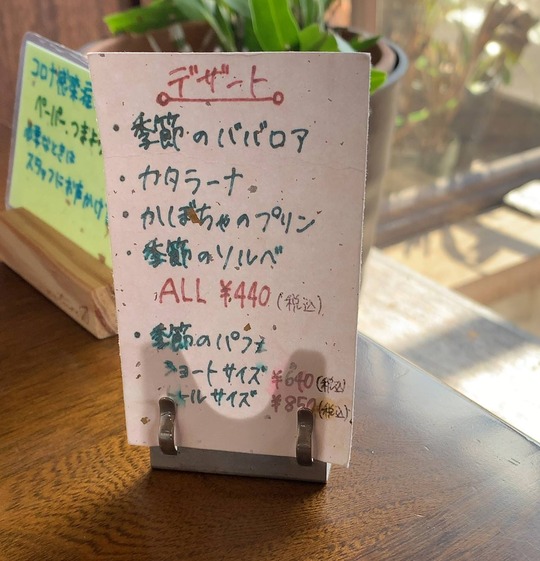 デザート
・季節のババロア
・カタラーナ
・かぼちゃのプリン
・季節のソルベ
ALL ¥440(税込)
・季節のパフェ
ショートサイズ ¥640(税込)
トールサイズ ¥850(税込)
コロナ感染症
ペーパー、つまよう
必要なときは
スタッフにお声かけ